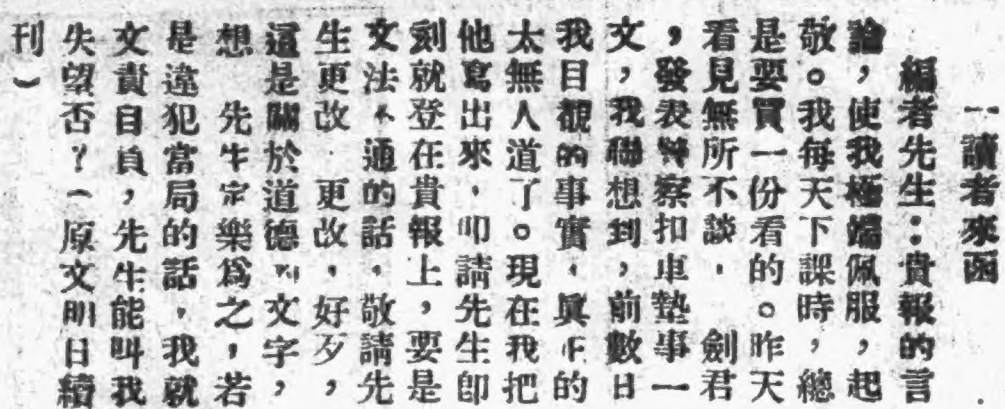 一讀者來函
編者先生：貴報的言
論，使我極端佩服，起
敬。我每天下課時，總
是要買一份看的。昨天
看見無所不談，劍君
，發表警察扣車墊事一
文，我聯想到，前數日
我目覩的事實，真正的
太無人道了。現在我把
他寫出來，叩請先生即
刻就登在貴報上，要是
文法不通的話，敬請先
生更改　更改，好歹，
這是關於道德的文字，
想　先生定樂為之，若
是違犯當局的話，我就
文責自負，先生能叫我
失望否？（原文明日續
刊）